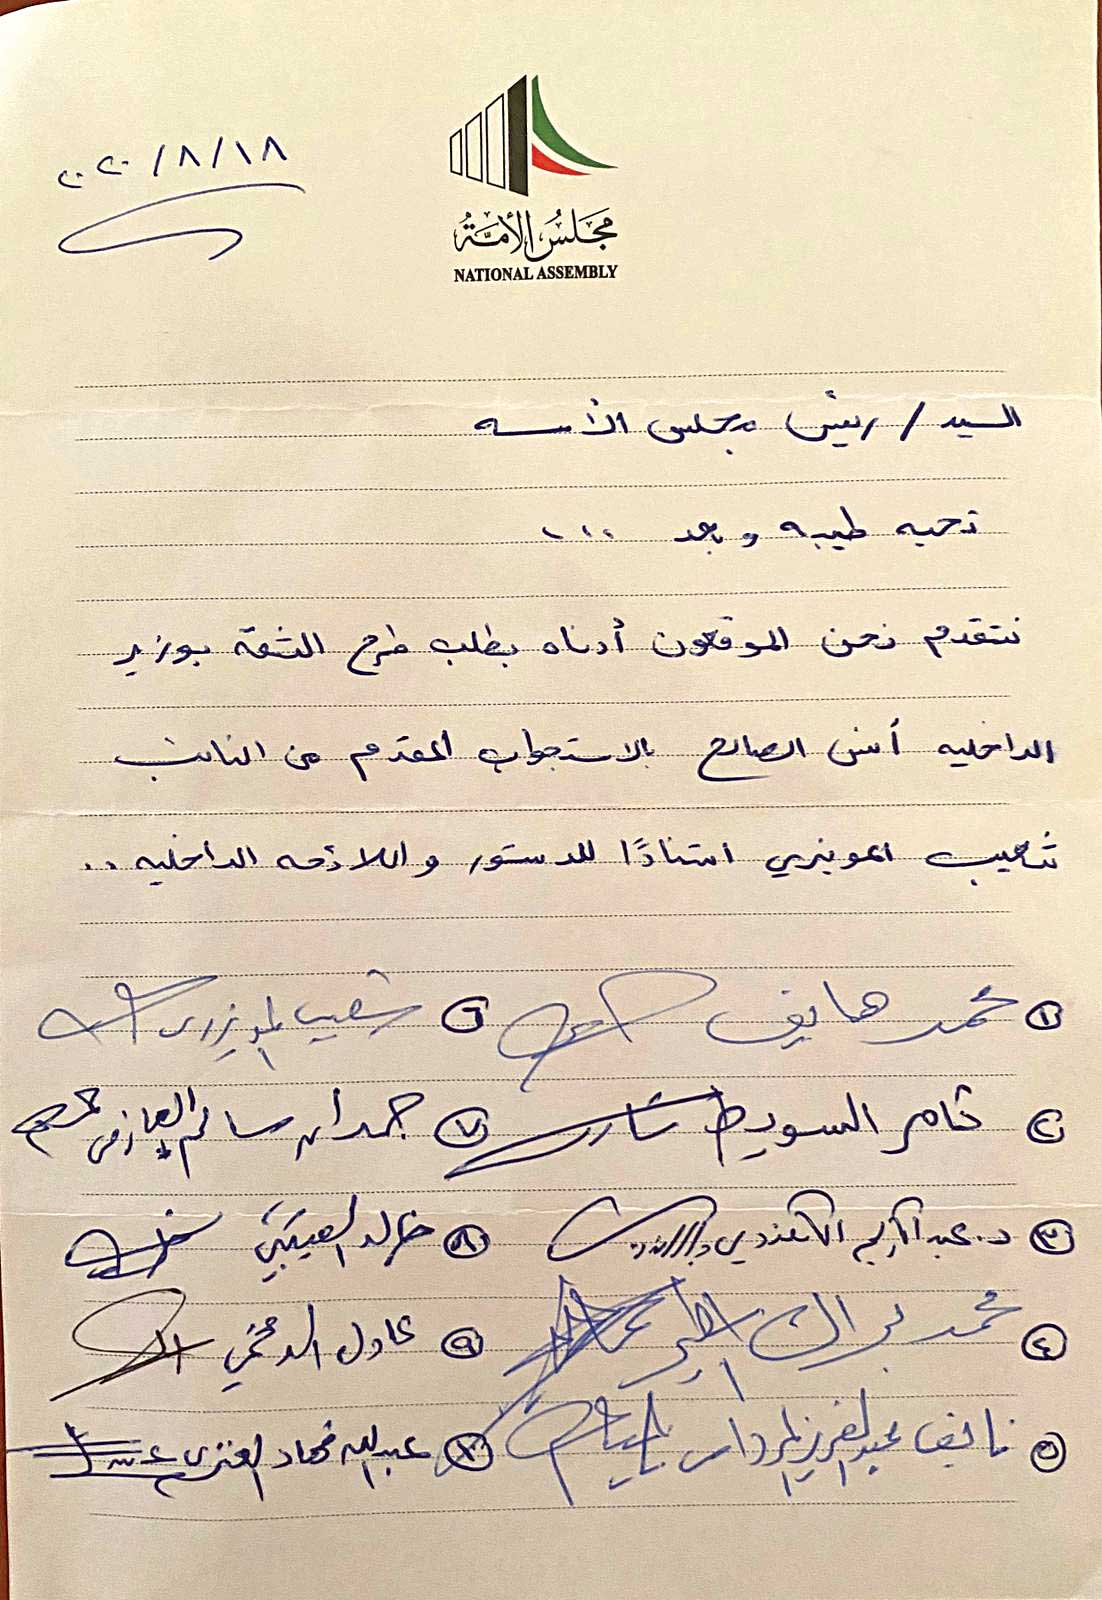 ٢٠٢٠/٨/١٨
مجلس الأمة
NATIONAL ASSEMBLY
السيد / رئيس مجلس الأمه
تحيه طيبه وبعد ...
نتقدم نحن الموقعون أدناه بطلب طرح الثقة بوزير
الداخليه أنس الصالح بالاستجواب المقدم من النائب
شعيب المويزري استناداً للدستور واللائحه الداخليه ..
١ محمد هايف
٦ شعيب المويزري
٢ ثامر السويط
٧ حمدان سالم العازمي
٣ د. عبدالكريم الكندري
٨ خالد العتيبي
٤ محمد براك المطير
٩ عادل الدمخي
٥ نايف عبدالعزيز المرداس
١٠ عبدالله فهاد العنزي